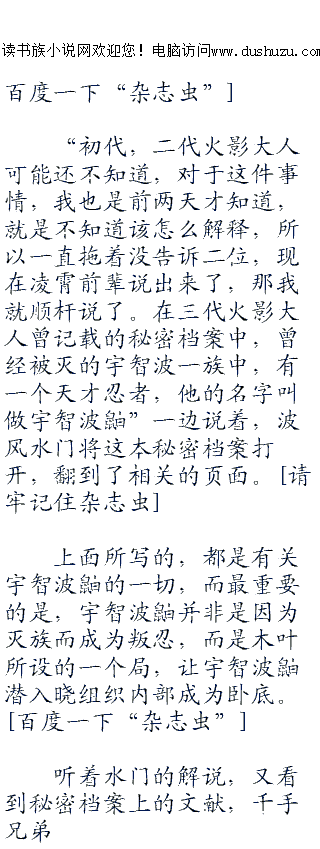 读书族小说网欢迎您！电脑访问www.dushuzu.com
百度一下“杂志虫”]
“初代，二代火影大人
可能还不知道，对于这件事
情，我也是前两天才知道，
就是不知道该怎么解释，所
以一直拖着没告诉二位，现
在凌霄前辈说出来了，那我
就顺杆说了。在三代火影大
人曾记载的秘密档案中，曾
经被灭的宇智波一族中，有
一个天才忍者，他的名字叫
做宇智波鼬”一边说着，波
风水门将这本秘密档案打
开，翻到了相关的页面。[请
牢记住杂志虫]
上面所写的，都是有关
宇智波鼬的一切，而最重要
的是，宇智波鼬并非是因为
灭族而成为叛忍，而是木叶
所设的一个局，让宇智波鼬
潜入晓组织内部成为卧底。
[百度一下“杂志虫”]
听着水门的解说，又看
到秘密档案上的文献，千手
兄弟